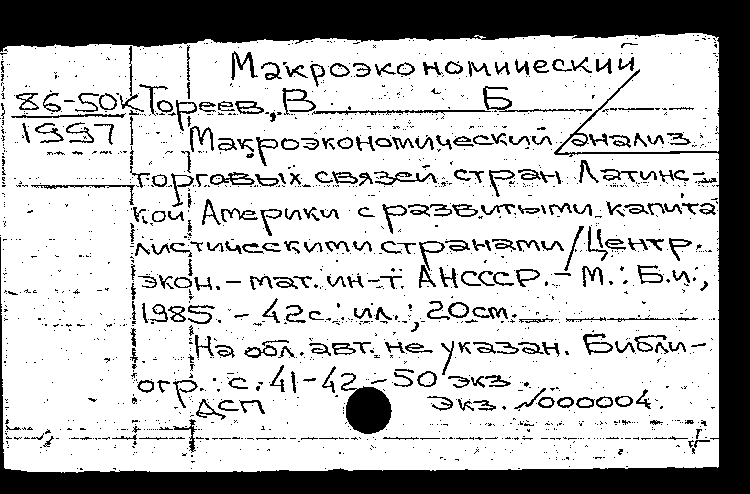 Макроэкономический
86-50к Тореев, В. Б
1997
Макроэкономический анализ
торговых связей стран Латинс-
кой Америки с развитыми капита
листическими странами / Центр.
экон.-мат. ин-т АНСССР. - М.: Б.и.,
1985. - 42с.: ил.; 20см.
На обл. авт. не указан. Библи-
огр.: с. 41-42 - 50 экз.
ДСП экз. №000004.